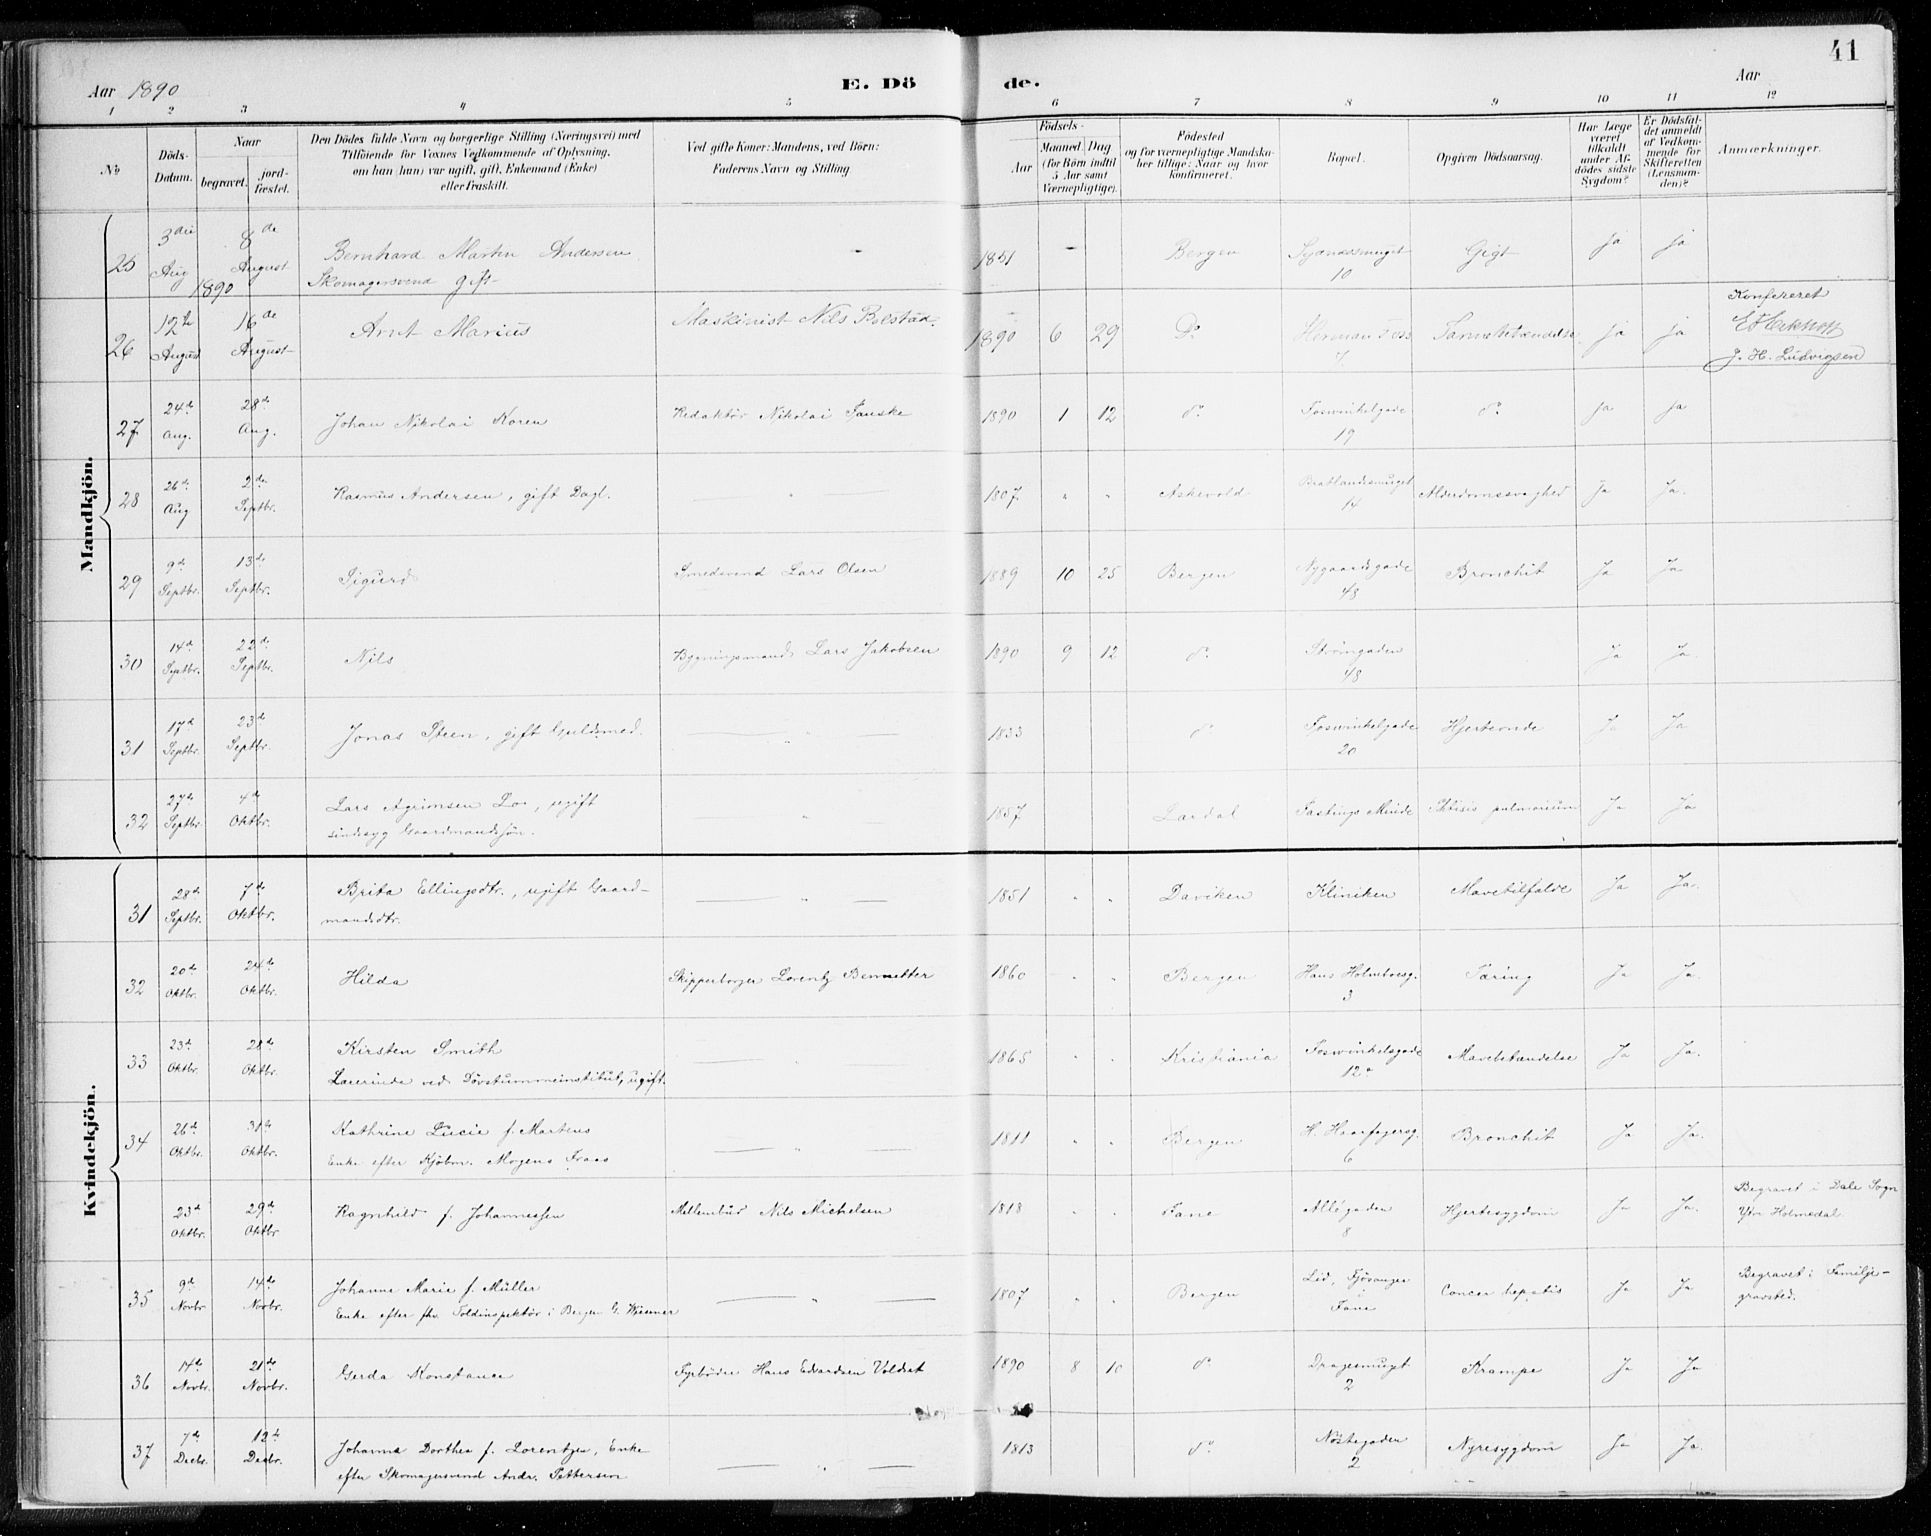 41
Aar 1890
E. Dö
de.
Aar
1 2 3 4 5 6 7 8 9 10 11 12
No
Döds-Datum.
Naar
begravet.
jord-fæstet.
Den Dödes fulde Navn og borgerlige Stilling (Næringsvei) med
Tilföiende for Voxnes Vedkommende af Oplysning,
om han (hun) var ugift, gift, Enkemand (Enke)
eller fraskilt.
Ved gifte Koner: Mandens, ved Börn:
Faderens Navn og Stilling.
Födsels-
Aar
Maaned. Dag
(for Börn indtil
5 Aar samt
Værnepligtige).
Födested
og for værnepligtige Mandska-
ber tillige: Naar og hvor
konfirmeret.
Bopæl.
Opgiven Dödsaarsag.
Har Læge
været
tilkaldt
under Af-
dödes sidste
Sygdom?
Er Dödsfal-
det anmeldt
af Vedkom-
mende for
Skifteretten
(Lensman-
den)?
Anmærkninger.
Mandkjön.
25 3die Aug 1890 8de August Bernhard Martin Andersen Skomagersvend gift - 1851 - Bergen 10 Gigt ja ja
26 12te August 16de August Arnt Marius Maskinist Nils Bolstad. 1890 6 29 Do Herman Foss 7. Tarmbetændelse ja ja Konfereret
J. H. Ludvigsen
27 24de Aug. 28de Aug. Johan Nikolai Koren Redaktør Nikolai Fanske 1890 1 12 do Foswinkelgade 19 do ja ja
28 26de Aug 2den Septbr. Rasmus Andersen, gift Dagl. — " — 1807. " " Askevold Bratlandsmuget 14 Alderdomssvaghed Ja Ja.
29 9de Septbr. 13de Septbr. Sigurd Smedsvend Lars Olsen 1889 10 25 Bergen Nygaardsgade 48 Bronchit Ja Ja
30 14de Septbr. 22de Septbr. Nils Bygningsmand Lars Jakobsen 1890 9 12 do Strömgaden 48 Ja Ja.
31 17de Septbr. 23de Septbr. Jonas Steen, gift Guldsmed. — " — 1833 do Foswinkelgade 20 Hjerteonde Ja Ja
32 27de Septbr. 4de Oktbr. Lars Agrimsen Lo, ugift sindssyg Gaardmandssøn. " 1857 Lærdal Fastings Minde Phtisis pulmonum Ja Ja
Kvindekjön.
31 28de Septbr. 7de Oktbr. Brita Ellingsdtr., ugift Gaard-
mandsdtr. — " — 1851 " " Daviken Kliniken Mavetilfælde Ja Ja.
32 20de Oktbr. 24de Oktbr. Hilda Skipperborger Lorentz Bennetter 1860 " " Bergen Hans Holmboesg. 3 Tæring Ja Ja.
33 23de Oktbr. 28de Oktbr. Kirsten Smith
Lærerinde ved Dövstummeinstitut, ugift. — " — 1865 " " Kristiania Foswinkelsgade 12a Mavebetændelse Ja Ja.
34 26de Oktbr. 31te Oktbr. Kathrine Lucie f. Martens
Enke efter Kjöbm. Mogens Fraas — " — 1811 " " Bergen H. Haarfagersg. 6 Bronchit Ja Ja.
23de Oktbr. 29de Oktbr. Ragnhild f. Johannessen Nils Michelsen 1818 " " Fane Allégaden 8 Hjertesygdom Ja Ja. Begravet i Dale Sogn
Ytre Holmedal.
35 9de Novbr. 14de Novbr. Johanne Marie f. Müller
Enke efter fhv. Toldinspektör i Bergen G. Wiesner — " — 1807 " " Bergen Lid, Fjösanger
i Fane Cancer hepatis Ja Ja Begravet i Familje-
gravsted.
36 14de Novbr. 21de Novbr. Gerda Konstance Fyrböder Hans Edvardsen Voldsat 1890 8 10 do Dragesmuget 2 Krampe Ja Ja
37 7de Decbr. 12te Decbr. Johanna Dorthea f. Lorentzen, Enke
efter Skomagersvend Andr. Pettersen — " — 1813 do Nöstegaden 2 Nyresygdom Ja Ja.